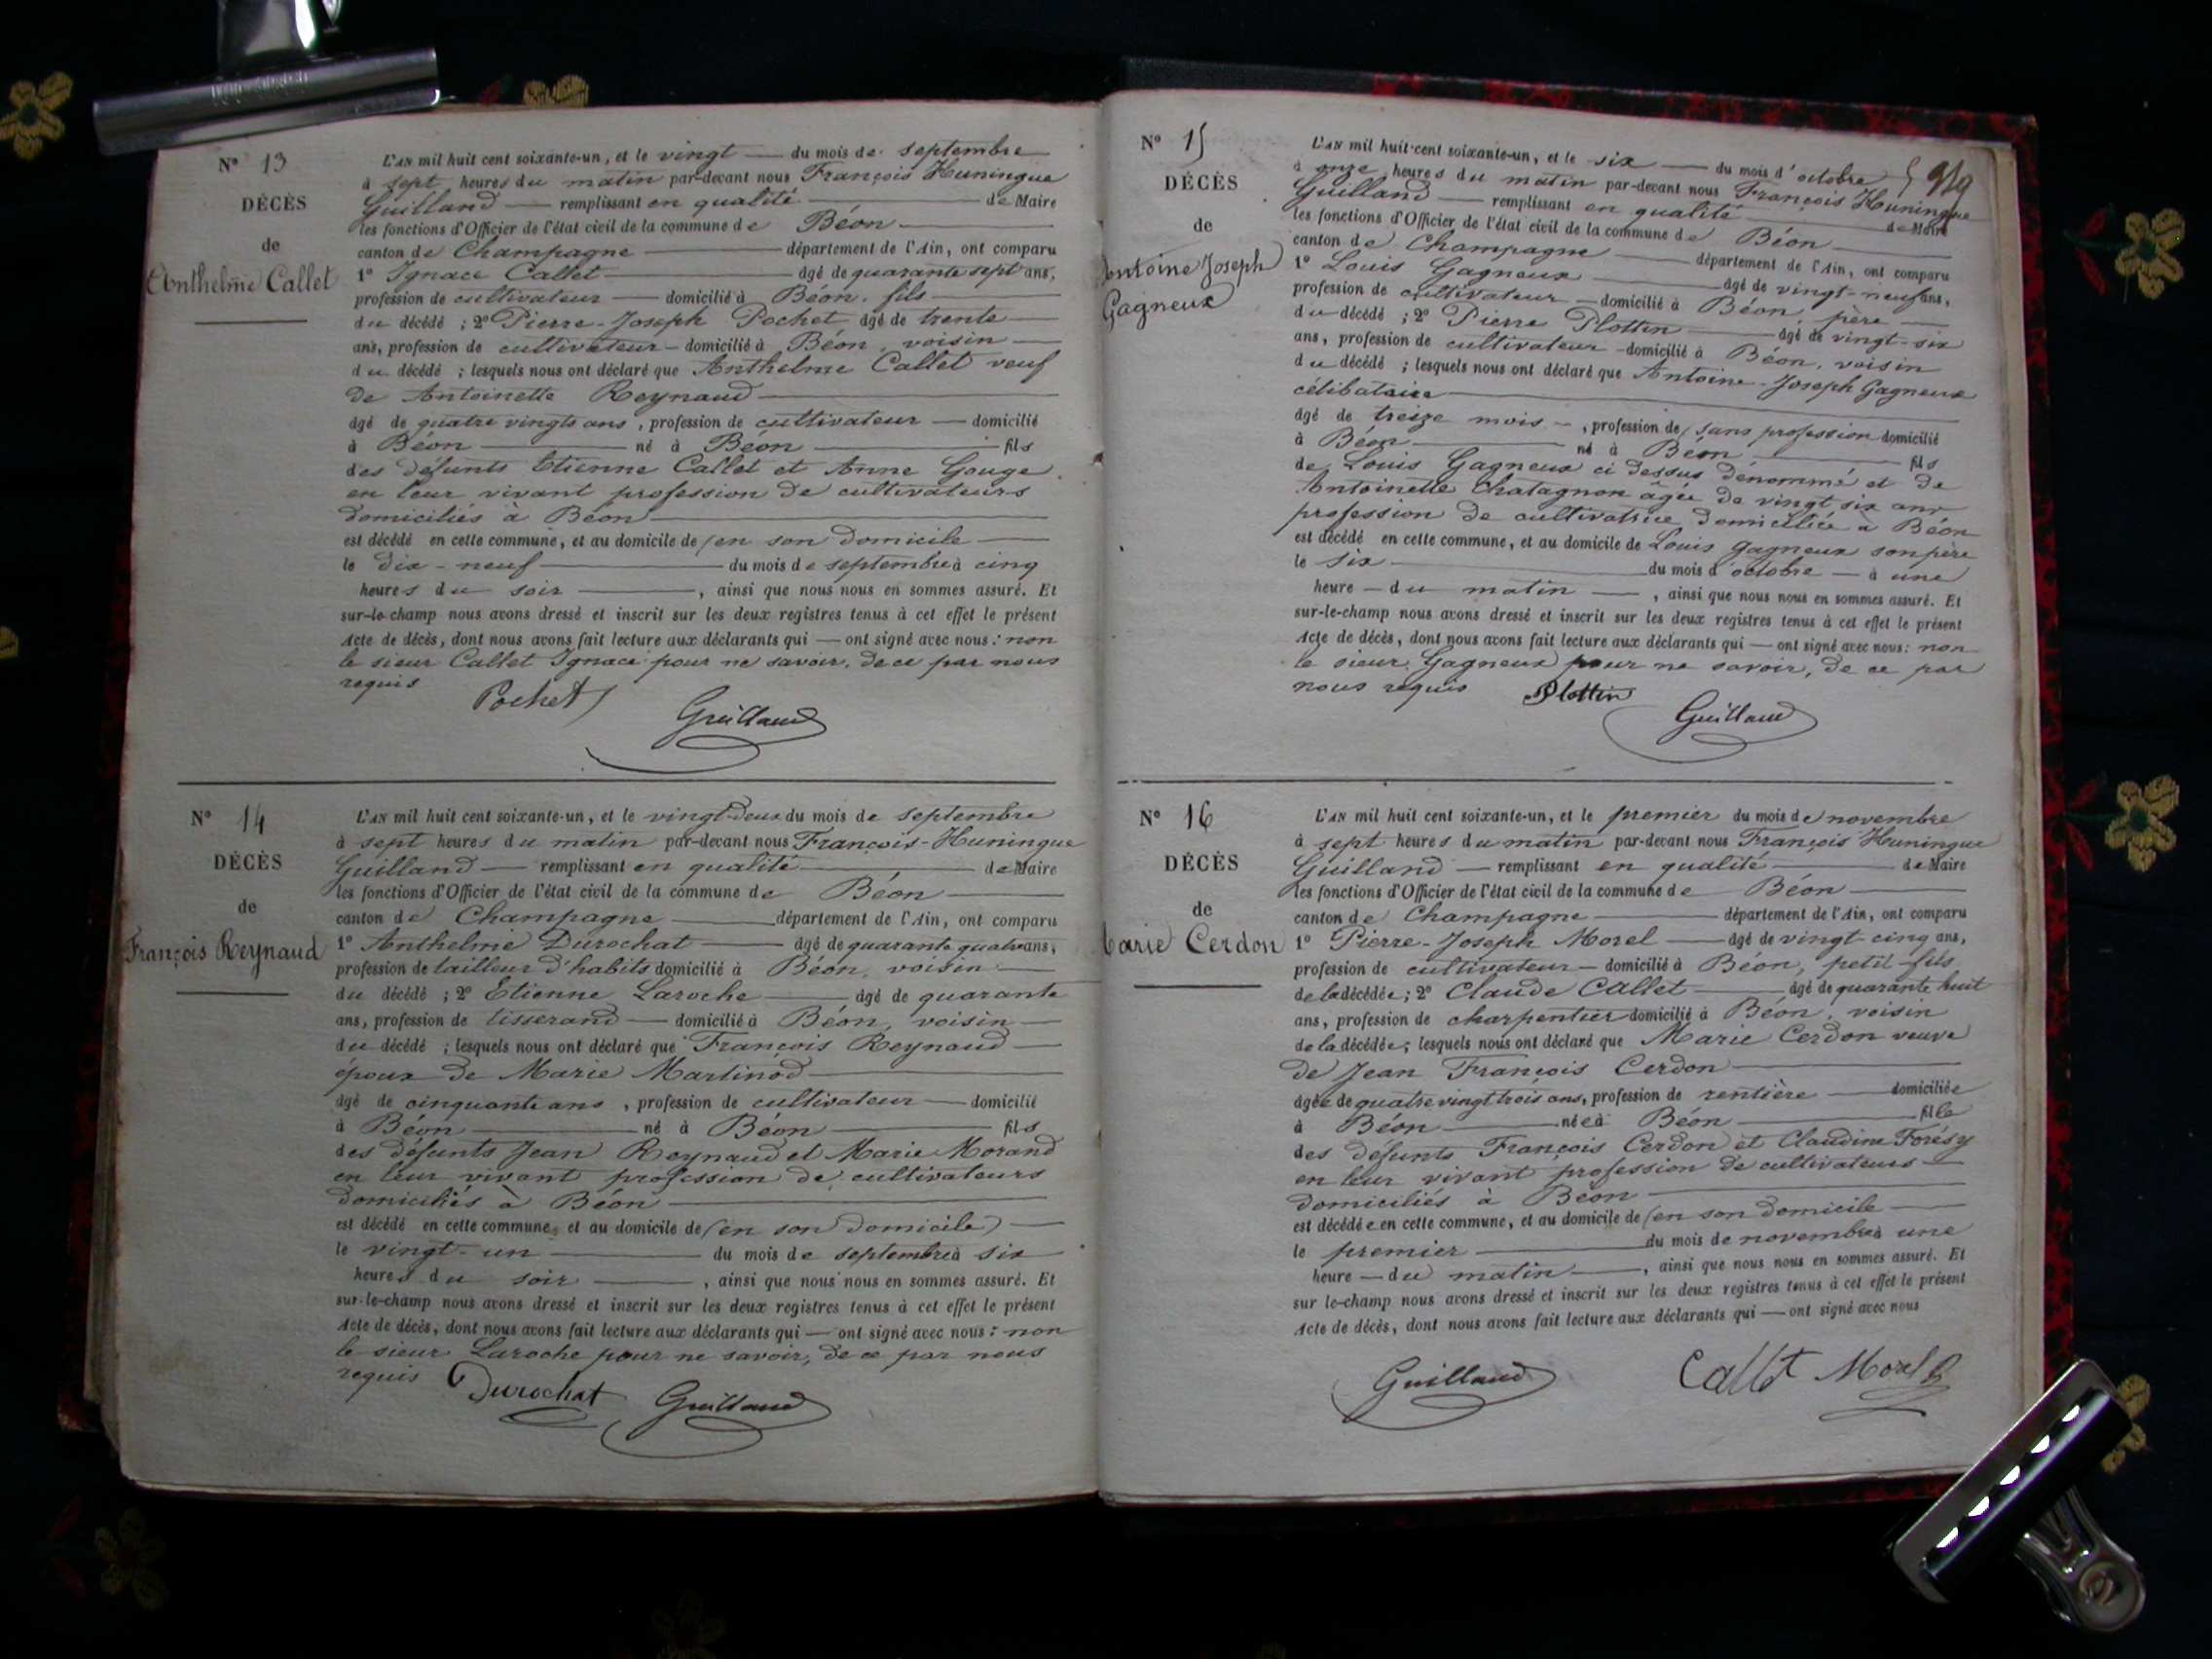 N° 13
DÉCÈS
de
Anthelme Callet
L'AN mil huit cent soixante-un, et le vingt du mois de septembre
à sept heures du matin par-devant nous François Huningue
Guilland remplissant en qualité de Maire
les fonctions d'Officier de l'état civil de la commune de Béon
canton de Champagne département de l'Ain, ont comparu
1° Ignace Callet âgé de quarante sept ans,
profession de cultivateur domicilié à Béon, fils
du décédé ; 2° Pierre-Joseph Pochet âgé de trente
ans, profession de cultivateur domicilié à Béon, voisin
du décédé ; lesquels nous ont déclaré que Anthelme Callet veuf
de Antoinette Reynaud
âgé de quatre vingts ans, profession de cultivateur domicilié
à Béon né à Béon fils
des défunts Etienne Callet et Anne Gouge
en leur vivant profession de cultivateurs
domiciliés à Béon
est décédé en cette commune, et au domicile de (en son domicile
le dix-neuf du mois de septembre à cinq
heures du soir, ainsi que nous nous en sommes assuré. Et
sur-le-champ nous avons dressé et inscrit sur les deux registres tenus à cet effet le présent
Acte de décès, dont nous avons fait lecture aux déclarants qui ont signé avec nous : non
le sieur Callet Ignace pour ne savoir, de ce par nous
requis
Pochet
Guilland
N° 14
DÉCÈS
de
François Reynaud
L'AN mil huit cent soixante-un, et le vingt-deux du mois de septembre
à sept heures du matin par-devant nous François-Huningue
Guilland remplissant en qualité de Maire
les fonctions d'Officier de l'état civil de la commune de Béon
canton de Champagne département de l'Ain, ont comparu
1° Anthelme Durochat âgé de quarante quatre ans,
profession de tailleur d'habits domicilié à Béon, voisin
du décédé ; 2° Etienne Laroche âgé de quarante
ans, profession de tisserand domicilié à Béon, voisin
du décédé ; lesquels nous ont déclaré que François Reynaud
époux de Marie Martinod
âgé de cinquante ans, profession de cultivateur domicilié
à Béon né à Béon fils
des défunts Jean Reynaud et Marie Morand
en leur vivant profession de cultivateurs
domiciliés à Béon
est décédé en cette commune, et au domicile de (en son domicile)
le vingt-un du mois de septembre à six
heures du soir, ainsi que nous nous en sommes assuré. Et
sur-le-champ nous avons dressé et inscrit sur les deux registres tenus à cet effet le présent
Acte de décès, dont nous avons fait lecture aux déclarants qui ont signé avec nous : non
le sieur Laroche pour ne savoir, de ce par nous
requis
Durochat
Guilland
N° 15
DÉCÈS
de
Antoine Joseph
Gagneux
L'AN mil huit cent soixante-un, et le six du mois d'octobre
à onze heures du matin par-devant nous François Huningue
Guilland remplissant en qualité de Maire
les fonctions d'Officier de l'état civil de la commune de Béon
canton de Champagne département de l'Ain, ont comparu
1° Louis Gagneux âgé de vingt-neuf ans,
profession de cultivateur domicilié à Béon père
du décédé ; 2° Pierre Plottin âgé de vingt-six
ans, profession de cultivateur domicilié à Béon, voisin
du décédé ; lesquels nous ont déclaré que Antoine-Joseph Gagneux
célibataire
âgé de treize mois, profession de (sans profession domicilié
à Béon né à Béon fils
de Louis Gagneux ci dessus dénommé et de
Antoinette Chatagnon âgée de vingt six ans
profession de cultivatrice domiciliée à Béon
est décédé en cette commune, et au domicile de Louis Gagneux son père
le six du mois d'octobre à une
heure du matin, ainsi que nous nous en sommes assuré. Et
sur-le-champ nous avons dressé et inscrit sur les deux registres tenus à cet effet le présent
Acte de décès, dont nous avons fait lecture aux déclarants qui ont signé avec nous : non
le sieur Gagneux pour ne savoir, de ce par
nous requis
Plottin
Guilland
N° 16
DÉCÈS
de
Marie Cerdon
L'AN mil huit cent soixante-un, et le premier du mois de novembre
à sept heures du matin par-devant nous François Huningue
Guilland remplissant en qualité de Maire
les fonctions d'Officier de l'état civil de la commune de Béon
canton de Champagne département de l'Ain, ont comparu
1° Pierre-Joseph Morel âgé de vingt-cinq ans,
profession de cultivateur domicilié à Béon, petit-fils
de la décédée ; 2° Claude Callet âgé de quarante huit
ans, profession de charpentier domicilié à Béon, voisin
de la décédée ; lesquels nous ont déclaré que Marie Cerdon veuve
de Jean François Cerdon
âgée de quatre vingt trois ans, profession de rentière domiciliée
à Béon née à Béon fille
des défunts François Cerdon et Claudine Forésy
en leur vivant profession de cultivateurs
domiciliés à Béon
est décédée en cette commune, et au domicile de (en son domicile
le premier du mois de novembre à une
heure du matin, ainsi que nous nous en sommes assuré. Et
sur le-champ nous avons dressé et inscrit sur les deux registres tenus à cet effet le présent
Acte de décès, dont nous avons fait lecture aux déclarants qui ont signé avec nous
Guilland
Callet Morel